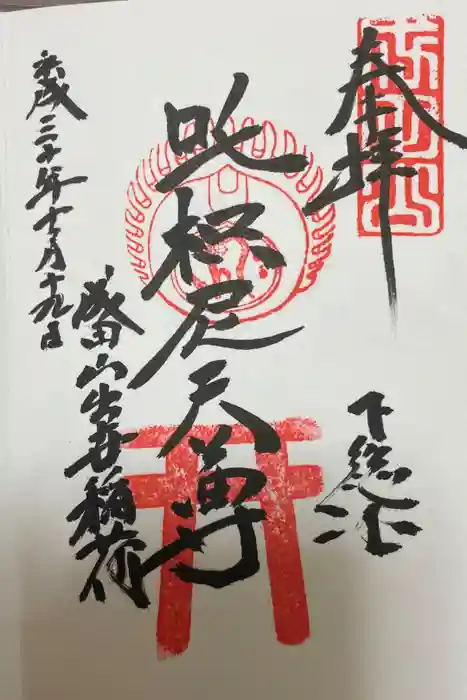 奉拝
下総
吒枳尼天尊
成田山出世稲荷
平成三十年十一月十九日